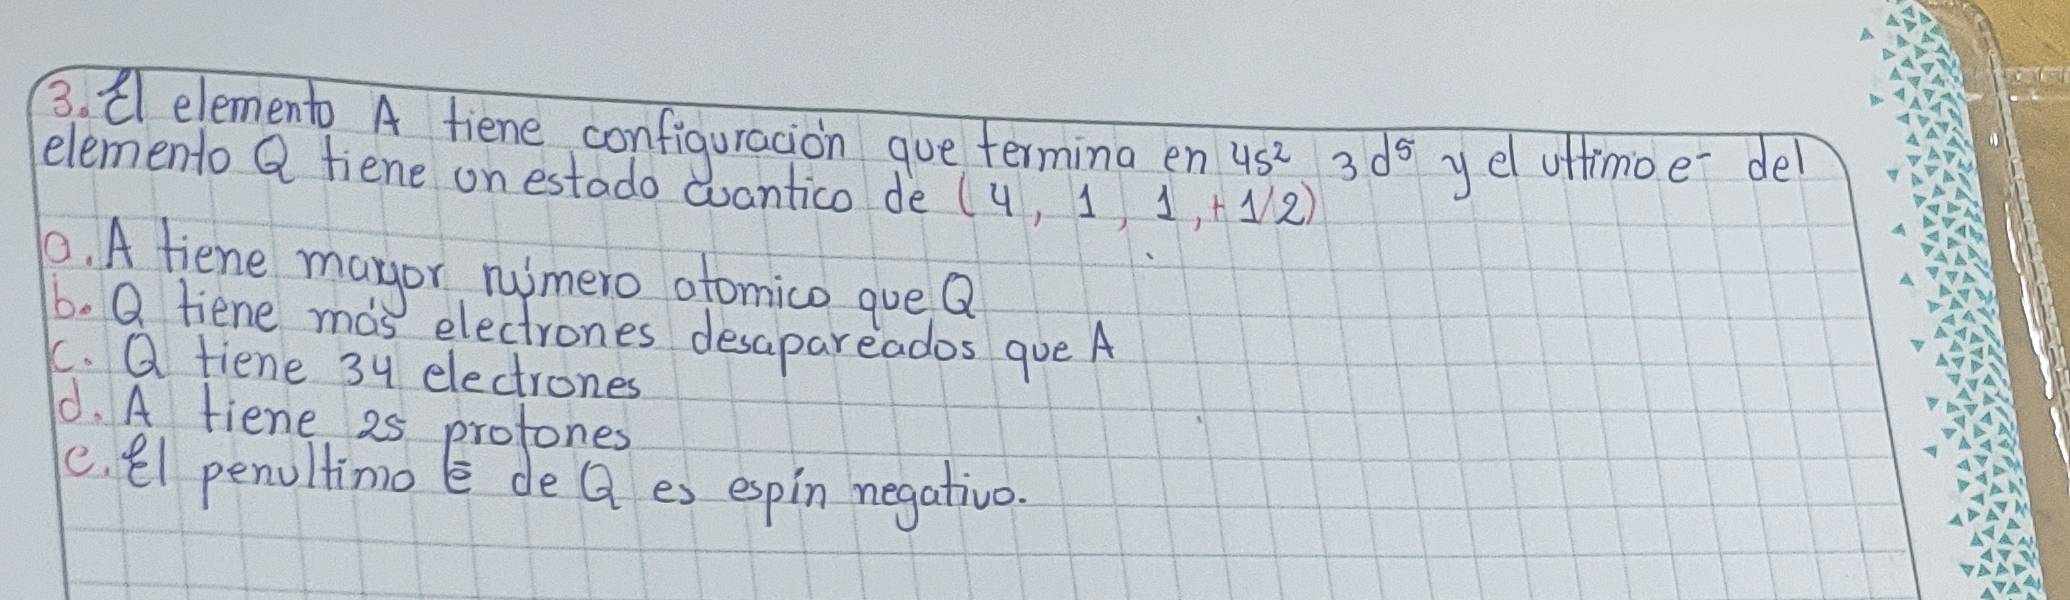 3. El elemento A tiene configuración que termina en 4s² 3d⁵ y el ultimo e⁻ del
elemento Q tiene un estado cuantico de (4, 1, 1, +1/2)
a. A tiene mayor número atomico que Q
b. Q tiene más electrones desapareados que A
c. Q tiene 34 electrones
d. A tiene 25 protones
e. El penultimo e⁻ de Q es espín negativo.